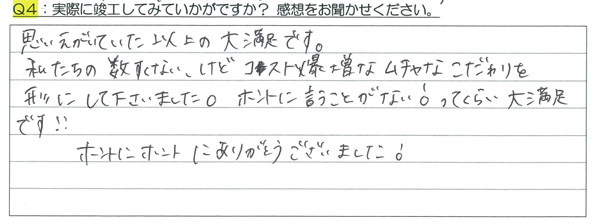 Q4：実際に竣工してみていかがですか？ 感想をお聞かせください。
思いえがいていた以上の大満足です。
私たちの数すくない、けどコスト爆増なムチャなこだわりを
形にして下さいました。ホントに言うことがない！ってくらい大満足
です!!
ホントにホントにありがとうございました！